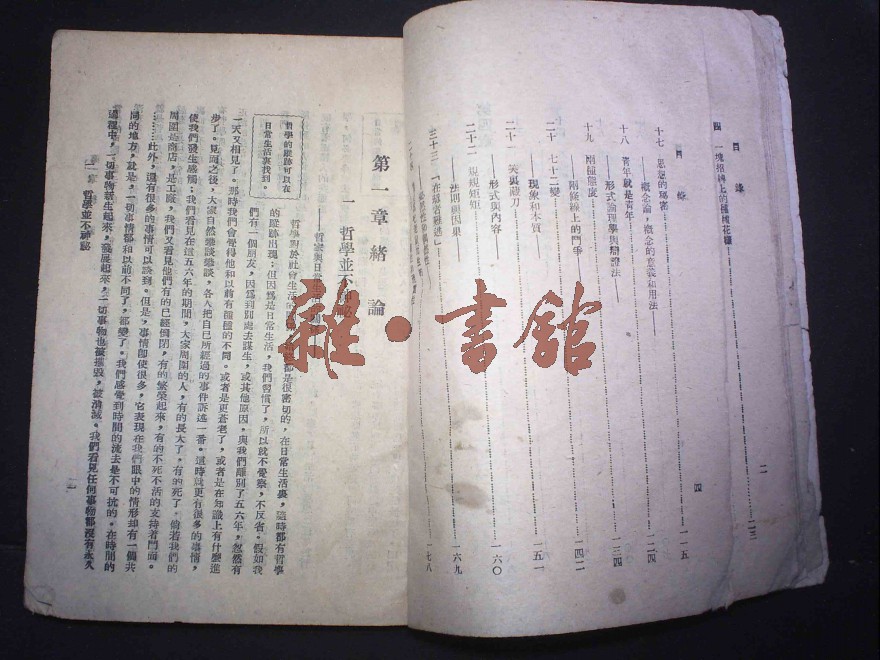 目錄
二
四 一塊招牌上的種種花樣
二三
目錄
四
十七 思想的秘密
——概念論，概念的意義和用法——
一一五
十八 青年就是青年
——形式論理學與辯證法——
一二四
十九 兩種態度
——兩條線上的鬥爭——
一三四
二十 七十二變
——現象和本質——
一四二
二十一 笑裏藏刀
——形式與內容——
一五一
二十二 規規矩矩
——法則與因果——
一六〇
二十三 「在劫者難逃」
一六九
一七八
第一章 緒論
一 哲學並不神秘
——哲學與日常生活
哲學的蹤跡可以在
日常生活裏找到。
哲學對於社會生活的關係，都是很密切的，在日常生活裏，隨時都有哲學
的蹤跡出現；但因爲是日常生活，我們習慣了，所以就不覺察，不反省。假如我
們有一個朋友，因爲到別處去謀生，或其他原因，與我們離別了五六年，忽然有
一天又相見了。那時我們會覺得他和以前有種種的不同。或者是更蒼老了，或者是在知識上有什麼進
步了。見面之後，大家自然雜談雜談，各人把自己所經過的事件訴述一番。這時就更有很多的事情，
使我們發生感觸；我們看見在這五六年的期間，大家周圍的人，有的長大了，有的死了。倘若我們的
周圍是商店，是工廠，我們又看見他們有的已經倒閉，有的繁榮起來，有的不死不活的支持着門面。
……此外，還有很多的事情可以談到。但是，事情卽使很多，它表現在我們眼中的情形却有一個共
同的地方，就是，一切事情都和以前不同了，都變了。我們感覺到時間的流去是不可抗的。在時間的
過程中，一切事物新生起來，發展起來，一切事物也被摧毀，被消滅。我們看見任何事物都沒有永久
哲學並不神秘
一
雜·書館